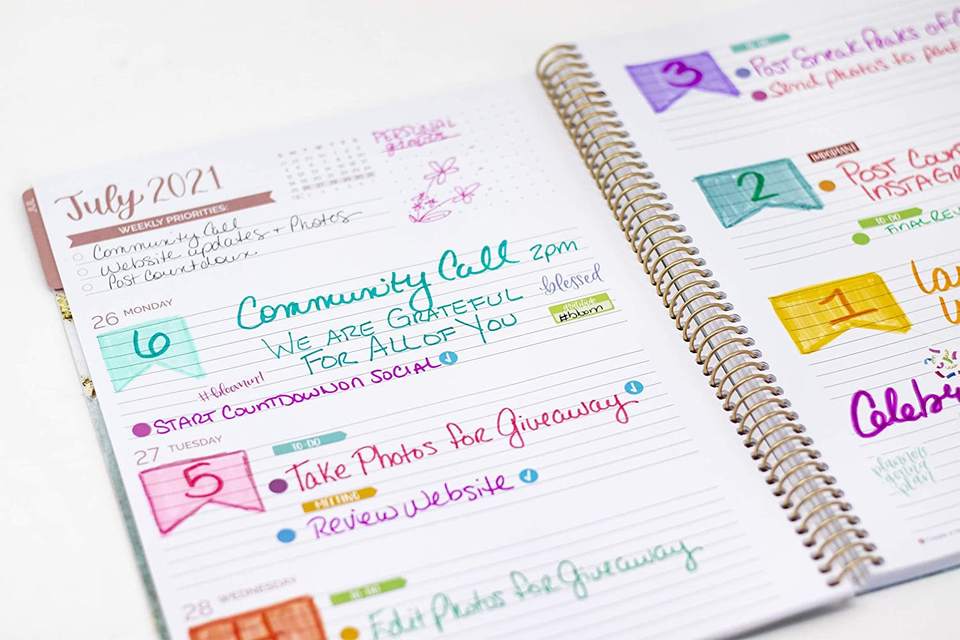 July 2021
WEEKLY PRIORITIES:
Community Call
Website updates + Photos
Post Countdown
PERSONAL
26 MONDAY
6
Community Call 2pm
WE ARE GRATEFUL
FOR ALL OF YOU
blessed
#bloom
#bloomin!
START COUNTDOWN ON SOCIAL
27 TUESDAY
5
TO-DO
Take Photos for Giveaway
MEETING
Review Website
28 WEDNESDAY
TO-DO
Edit Photos for Giveaway
3
TO-DO
Post Sneak Peaks of
Send photos to
2
IMPORTANT
POST
INSTAGR
TO-DO
FINAL
1
Celeb